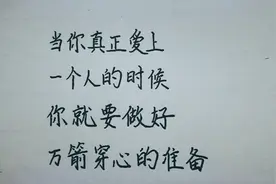 当你真正爱上
一个人的时候
你就要做好
万箭穿心的准备